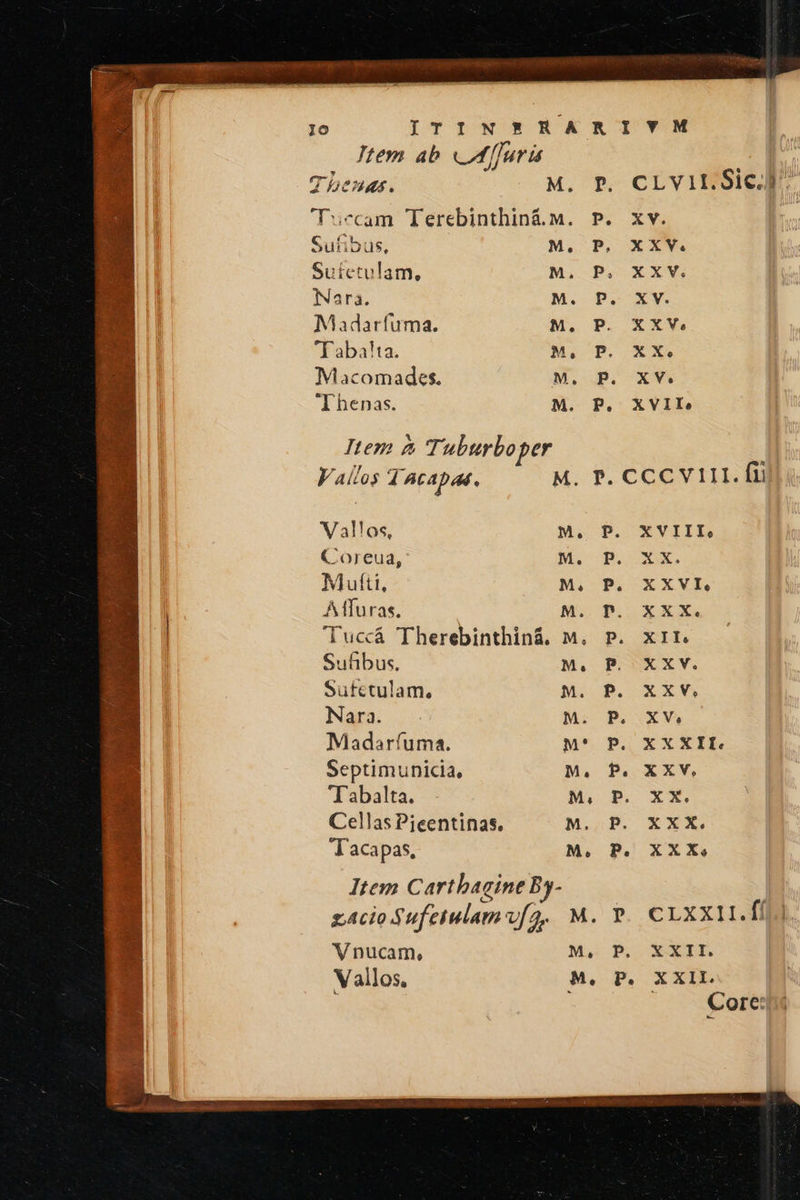 10 ITINERARIVM
Item ab Aſſuris
Thenas. M. P. CLVII. Sic.
Tuccam Terebinthinâ. M. P. XV.
Sufibus, M. P. XXV.
Sufetulam, M. P. XXV.
Nara. M. P. XV.
Madarſuma. M. P. XXV.
Tabalta. M. P. XX.
Macomades. M. P. XV.
Thenas. M. P. XVII.
Item à Tuburboper
Vallos Tacapas. M. P. CCCVIII. ſi
Vallos, M. P. XVIII.
Coreua, M. P. XX.
Muſti, M. P. XXVI.
Aſſuras. M. P. XXX.
Tuccâ Therebinthinâ. M. P. XII.
Sufibus. M. P. XXV.
Sufetulam. M. P. XXV.
Nara. M. P. XV.
Madarſuma. M. P. XXXII.
Septimunicia, M. P. XXV.
Tabalta. M. P. XX.
Cellas Picentinas. M. P. XXX.
Tacapas, M. P. XXX.
Item Carthagine By-
zacio Sufetulam vſq, M. P. CLXXII. ſi
Vnucam, M. P. XXII.
Vallos, M. P. XXII.
Core